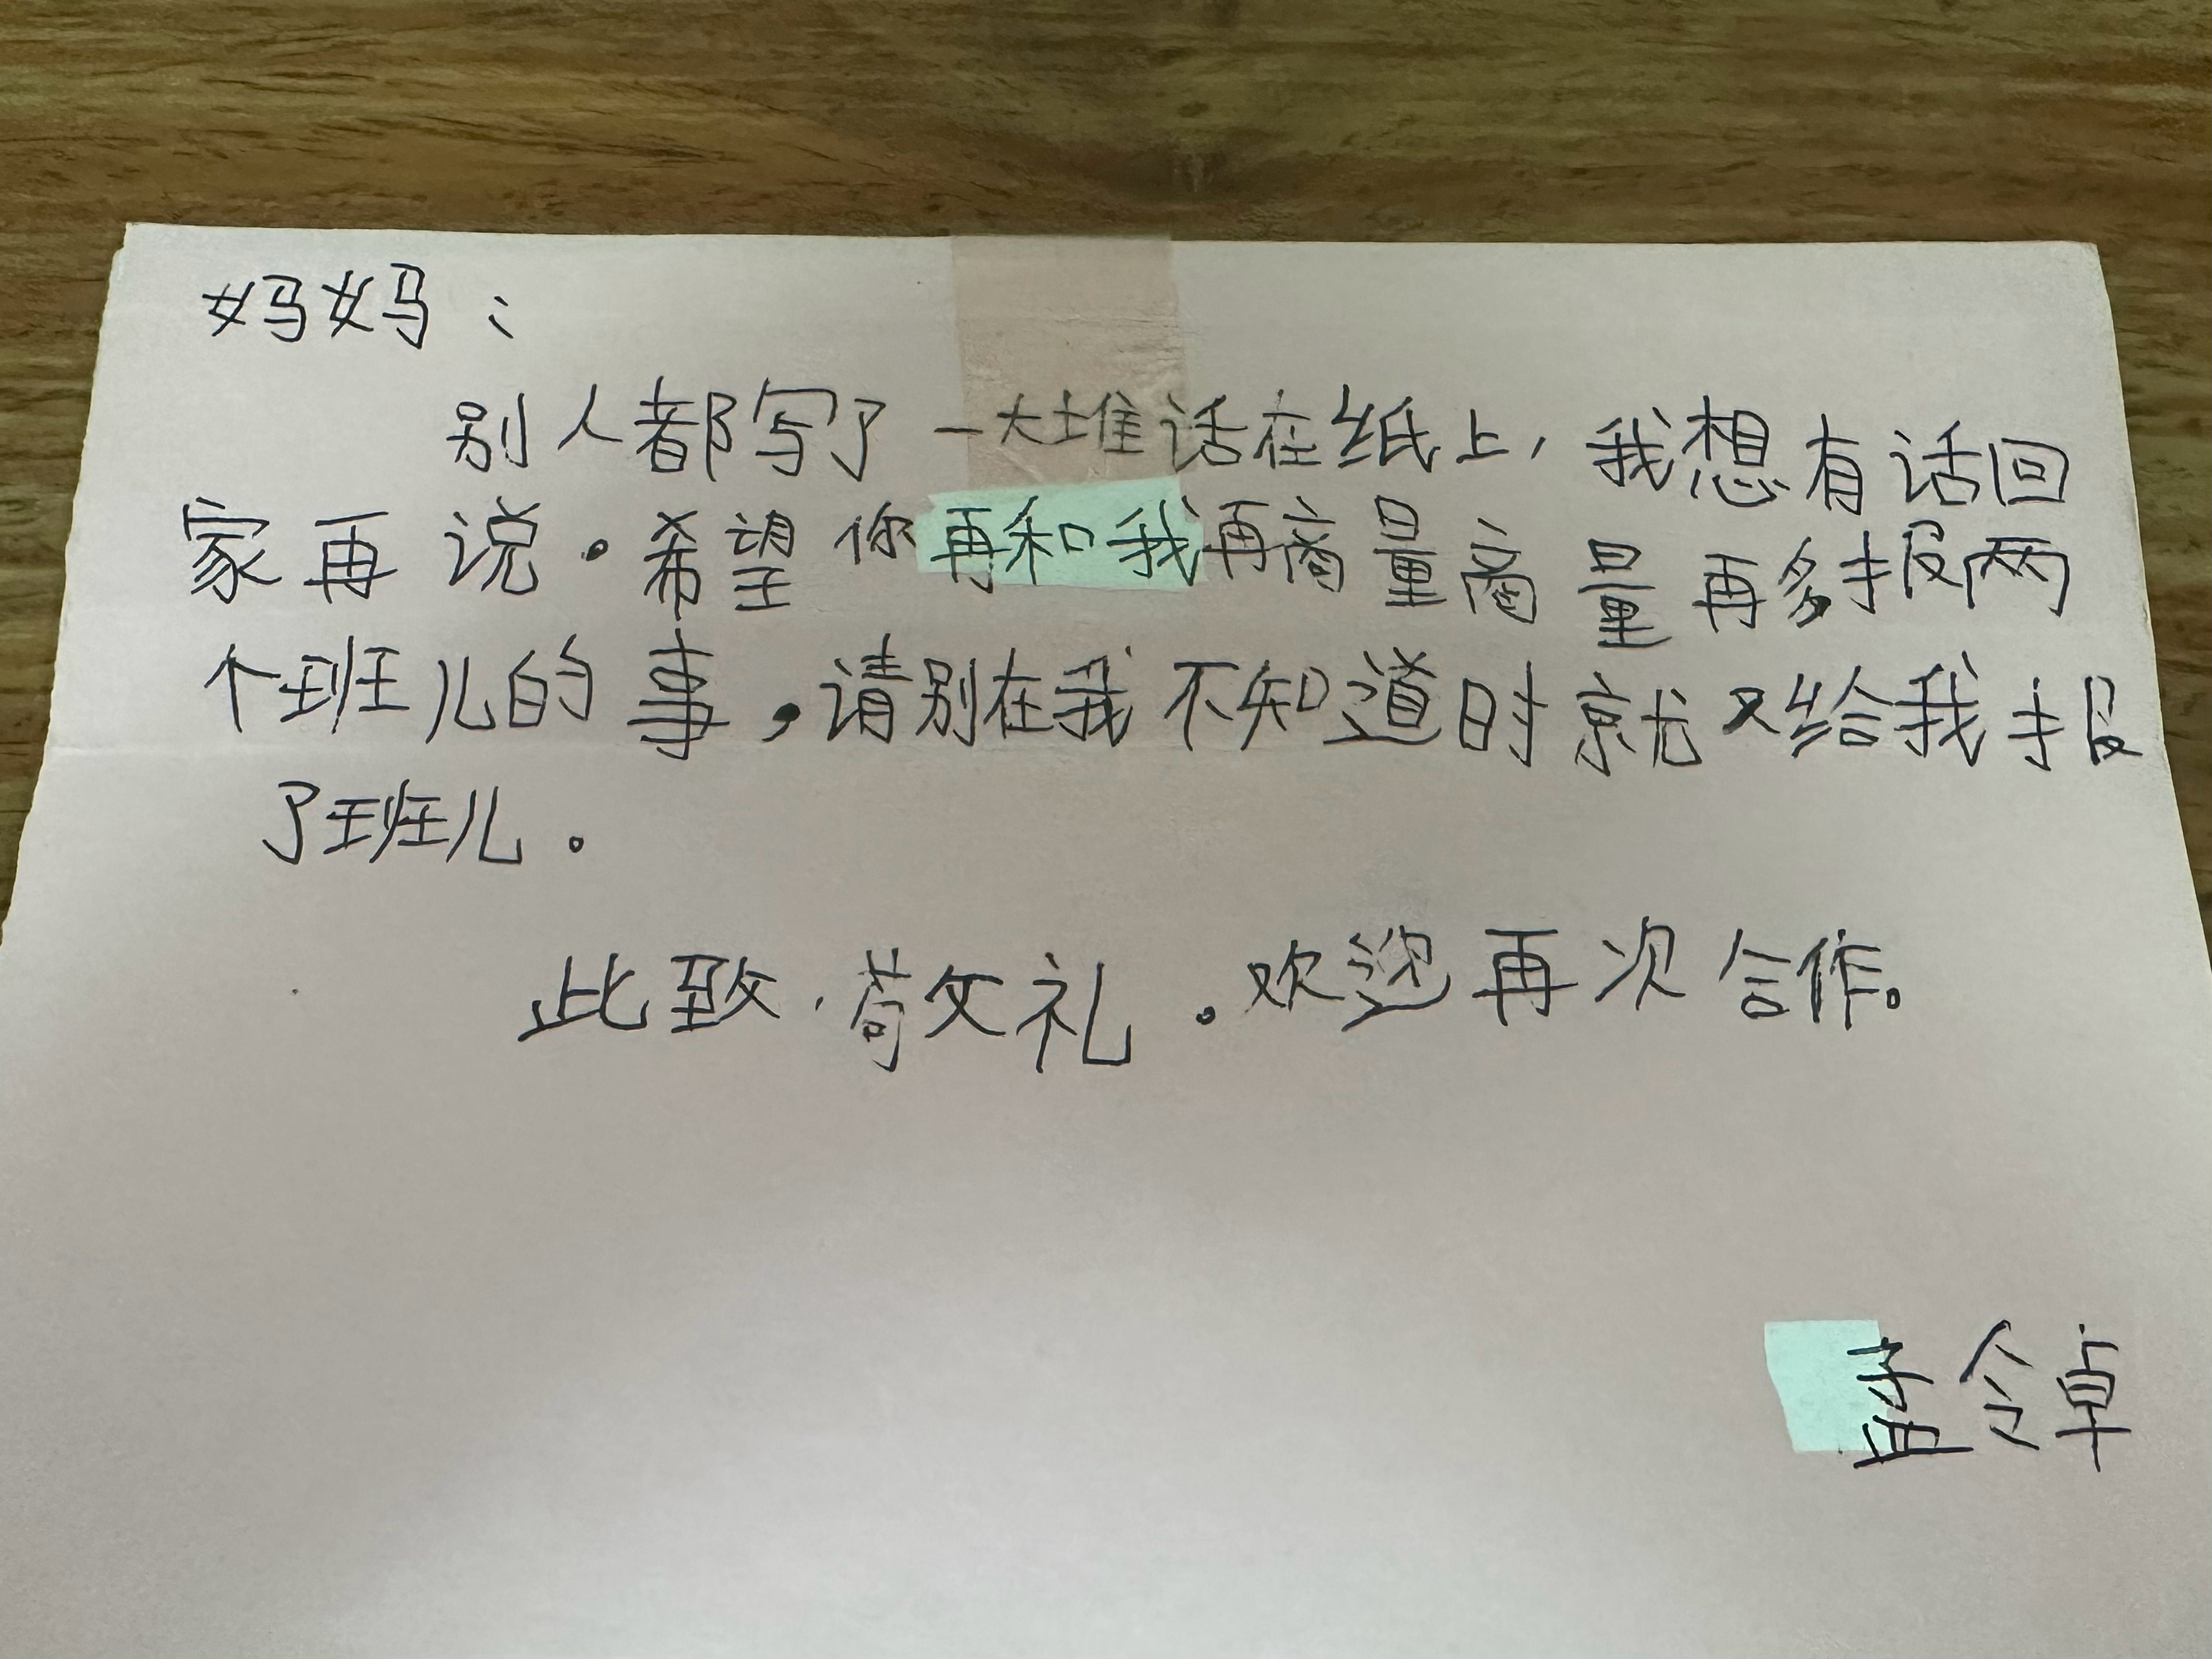 妈妈：
别人都写了一大堆话在纸上，我想有话回
家再说。希望你再和我再商量商量再多报两
个班儿的事，请别在我不知道时就又给我报
了班儿。
此致，敬礼。欢迎再次合作。
孟令卓